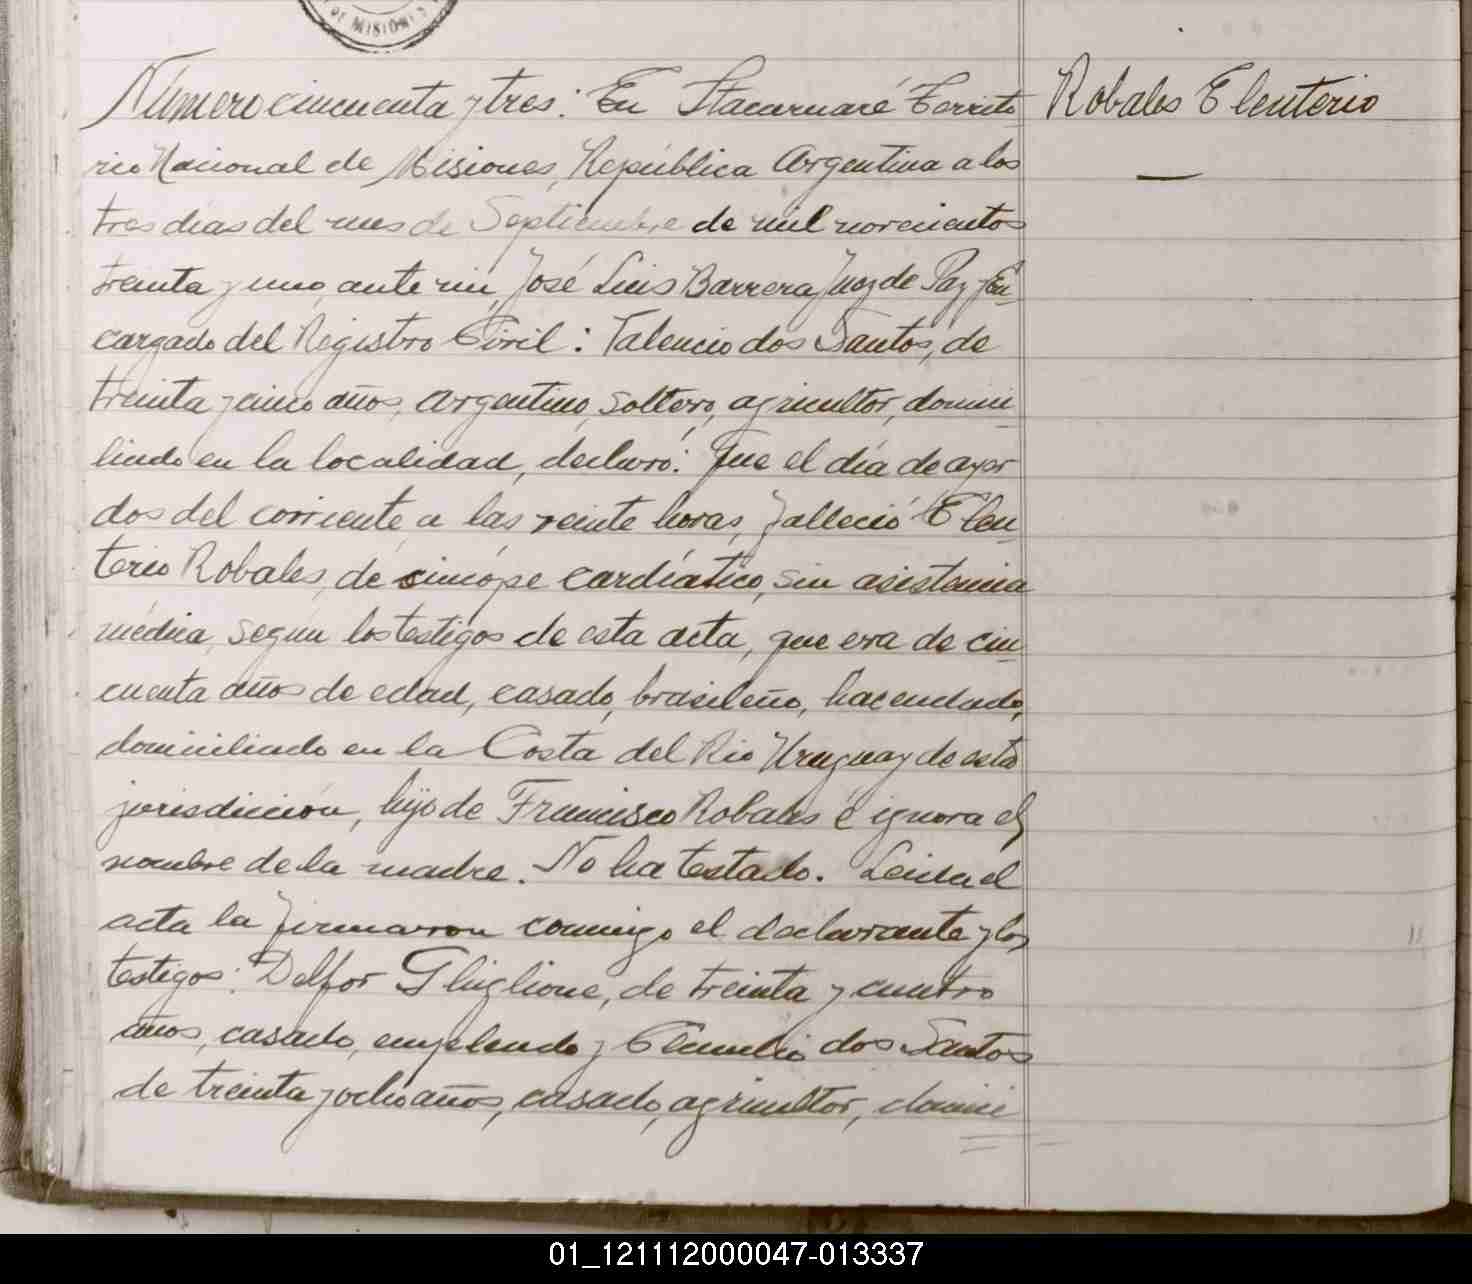 DE MISIONES
Número cincuenta y tres: En Itacaruaré Territo
Robales Eleuterio
rio Nacional de Misiones, República Argentina a los
tres días del mes de Septiembre de mil novecientos
treinta y uno, ante mí, José Luis Barrera Juez de Paz y En-
cargado del Registro Civil: Valencio dos Santos, de
treinta y cinco años, argentino, soltero, agricultor, domici-
liado en la localidad, declaró: Que el día de ayer
dos del corriente, a las veinte horas, falleció Eleu-
terio Robales, de síncope cardíatico, sin asistencia
médica, según los testigos de esta acta, que era de cin-
cuenta años de edad, casado, brasileño, hacendado,
domiciliado en la Costa del Río Uruguay de esta
jurisdicción, hijo de Francisco Robales é ignora el
nombre de la madre. No ha testado. Leida el
acta la firmaron conmigo el declarante y los
testigos: Delfor Ghiglione, de treinta y cuatro
años, casado, empleado y Claudio dos Santos
de treinta y ocho años, casado, agricultor, domici
01_121112000047-013337